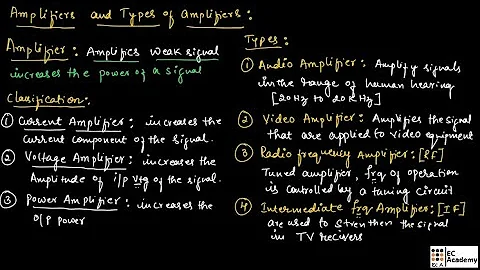 Amplifiers and Types of Amplifiers :
Amplifier : Amplifies weak signal
increases the power of a signal
Clasification :
① Current Amplifier : increases the
current component of the signal.
② Voltage Amplifier : increases the
Amplitude of i/p vtg of the signal.
③ Power Amplifier : increases the
O/p power
Types :
① Audio Amplifier : Amplify signals
in the range of human hearing
[20Hz to 20KHz]
② Video Amplifier : Amplifies the signal
that are applied to video equipment
③ Radio frequency Amplifier : [RF]
Tuned amplifier, frq of operation
is controlled by a tuning circuit
④ Intermediate frq Amplifier : [IF]
are used to strenthen the signal
in TV recivers
EC
Academy